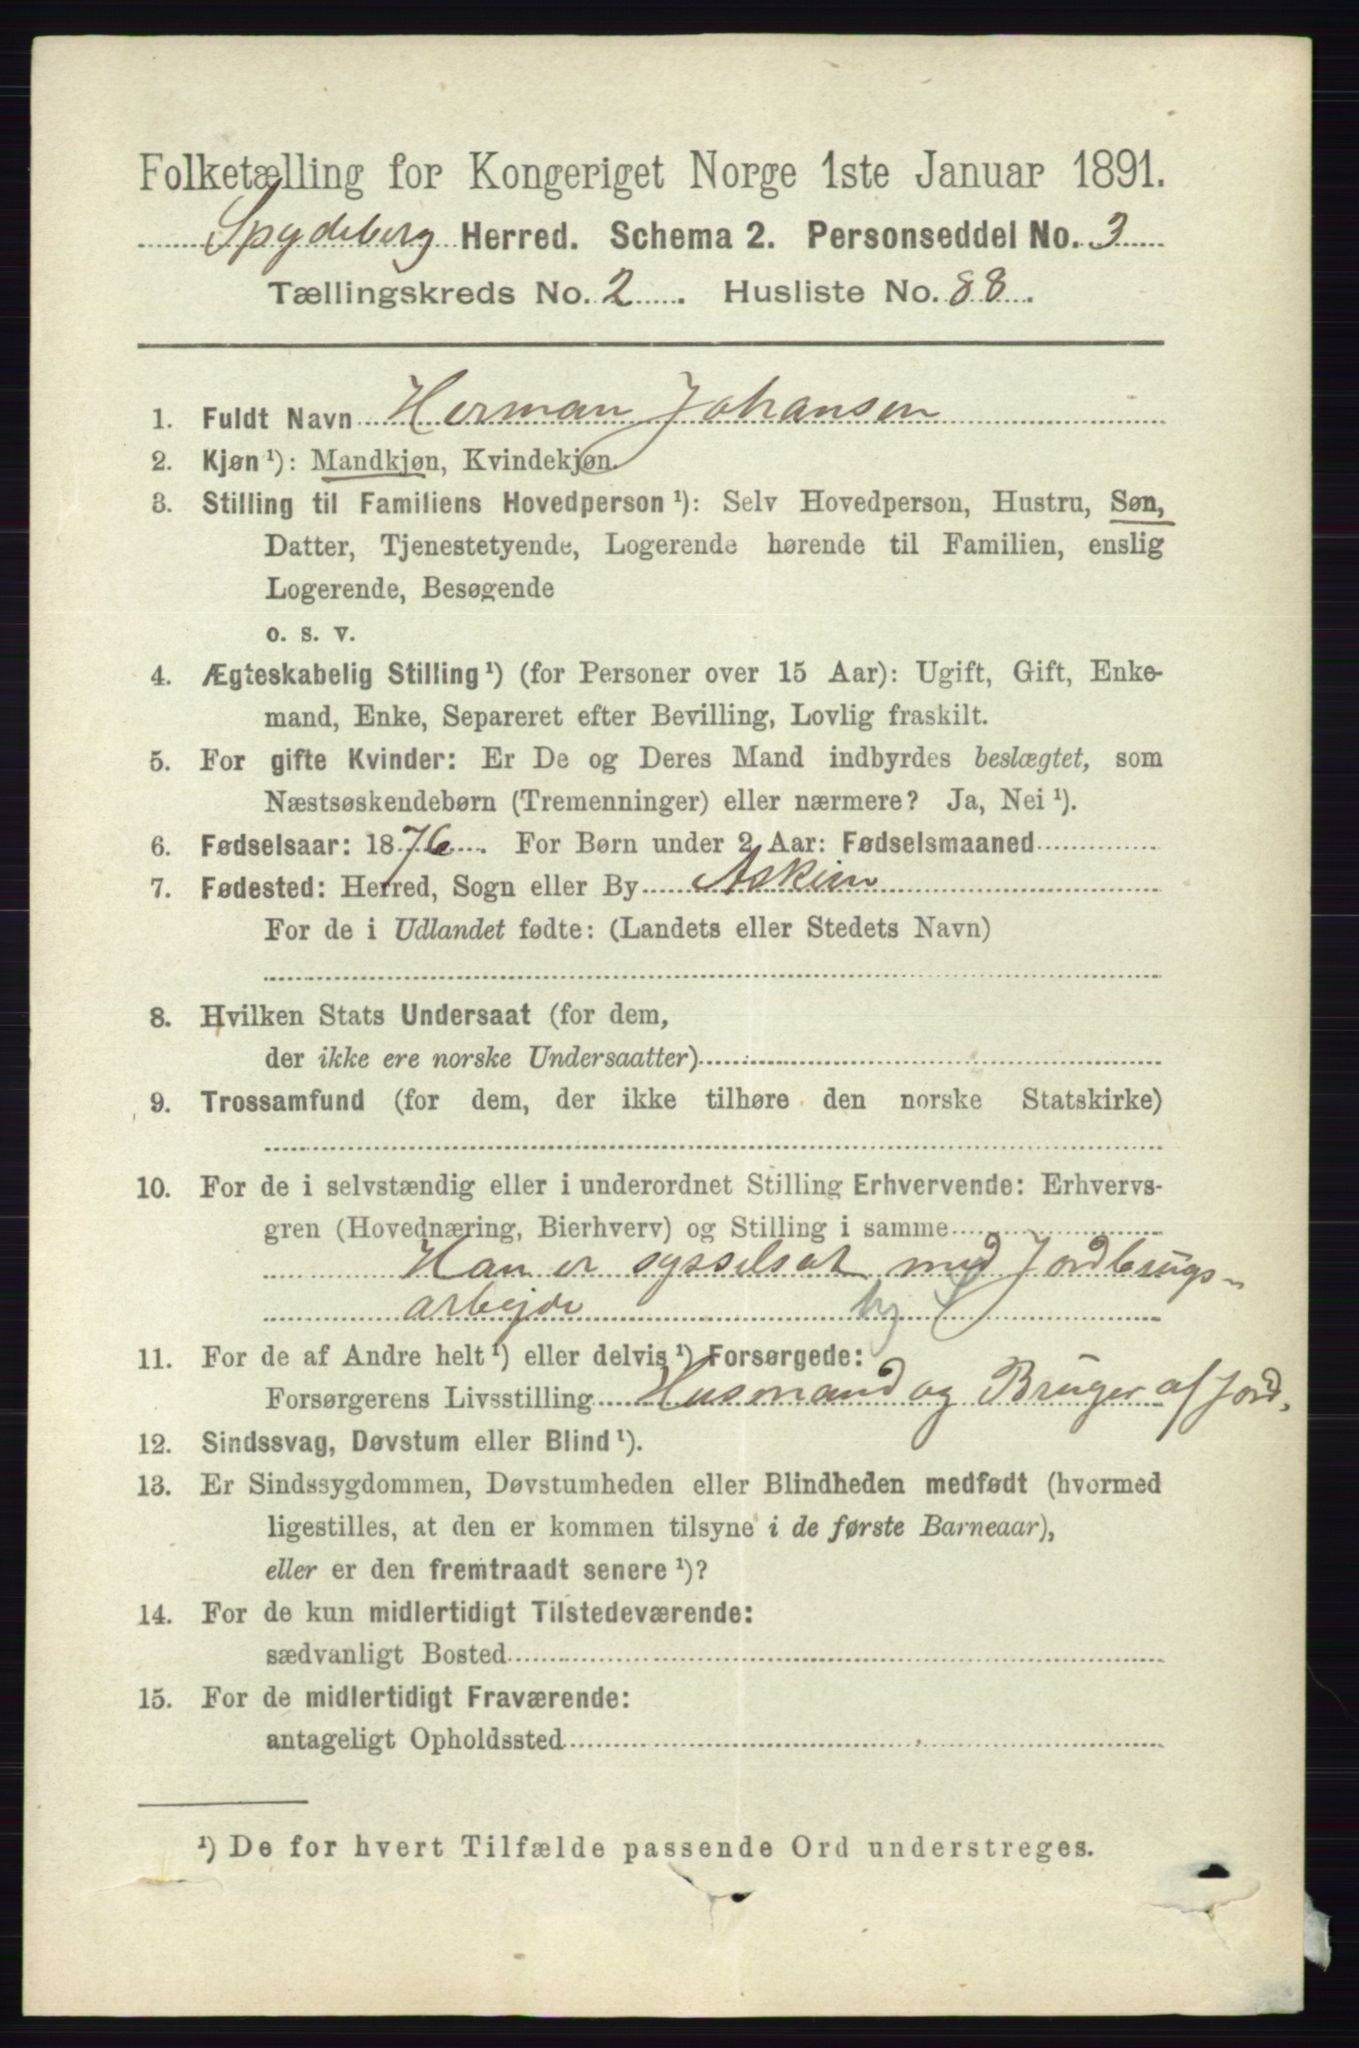 Folketælling for Kongeriget Norge 1ste Januar 1891.
Spydeberg Herred. Schema 2. Personseddel No. 3
Tællingskreds No. 2. Husliste No. 88.
1. Fuldt Navn Herman Johansen
2. Kjøn ¹): Mandkjøn, Kvindekjøn.
3. Stilling til Familiens Hovedperson ¹): Selv Hovedperson, Hustru, Søn,
Datter, Tjenestetyende, Logerende hørende til Familien, enslig
Logerende, Besøgende
o. s. v.
4. Ægteskabelig Stilling ¹) (for Personer over 15 Aar): Ugift, Gift, Enke-
mand, Enke, Separeret efter Bevilling, Lovlig fraskilt.
5. For gifte Kvinder: Er De og Deres Mand indbyrdes beslægtet, som
Næstsøskendebørn (Tremenninger) eller nærmere? Ja, Nei ¹).
6. Fødselsaar: 1876. For Børn under 2 Aar: Fødselsmaaned
7. Fødested: Herred, Sogn eller By Askim
For de i Udlandet fødte: (Landets eller Stedets Navn)
8. Hvilken Stats Undersaat (for dem,
der ikke ere norske Undersaatter)
9. Trossamfund (for dem, der ikke tilhøre den norske Statskirke)
10. For de i selvstændig eller i underordnet Stilling Erhvervende: Erhvervs-
gren (Hovednæring, Bierhverv) og Stilling i samme
Han er sysselsat med Jordbrugs-
arbejde
11. For de af Andre helt ¹) eller delvis ¹) Forsørgede:
Forsørgerens Livsstilling Husmand og Bruger af Jord.
12. Sindssvag, Døvstum eller Blind ¹).
13. Er Sindssygdommen, Døvstumheden eller Blindheden medfødt (hvormed
ligestilles, at den er kommen tilsyne i de første Barneaar),
eller er den fremtraadt senere ¹)?
14. For de kun midlertidigt Tilstedeværende:
sædvanligt Bosted
15. For de midlertidigt Fraværende:
antageligt Opholdssted
¹) De for hvert Tilfælde passende Ord understreges.